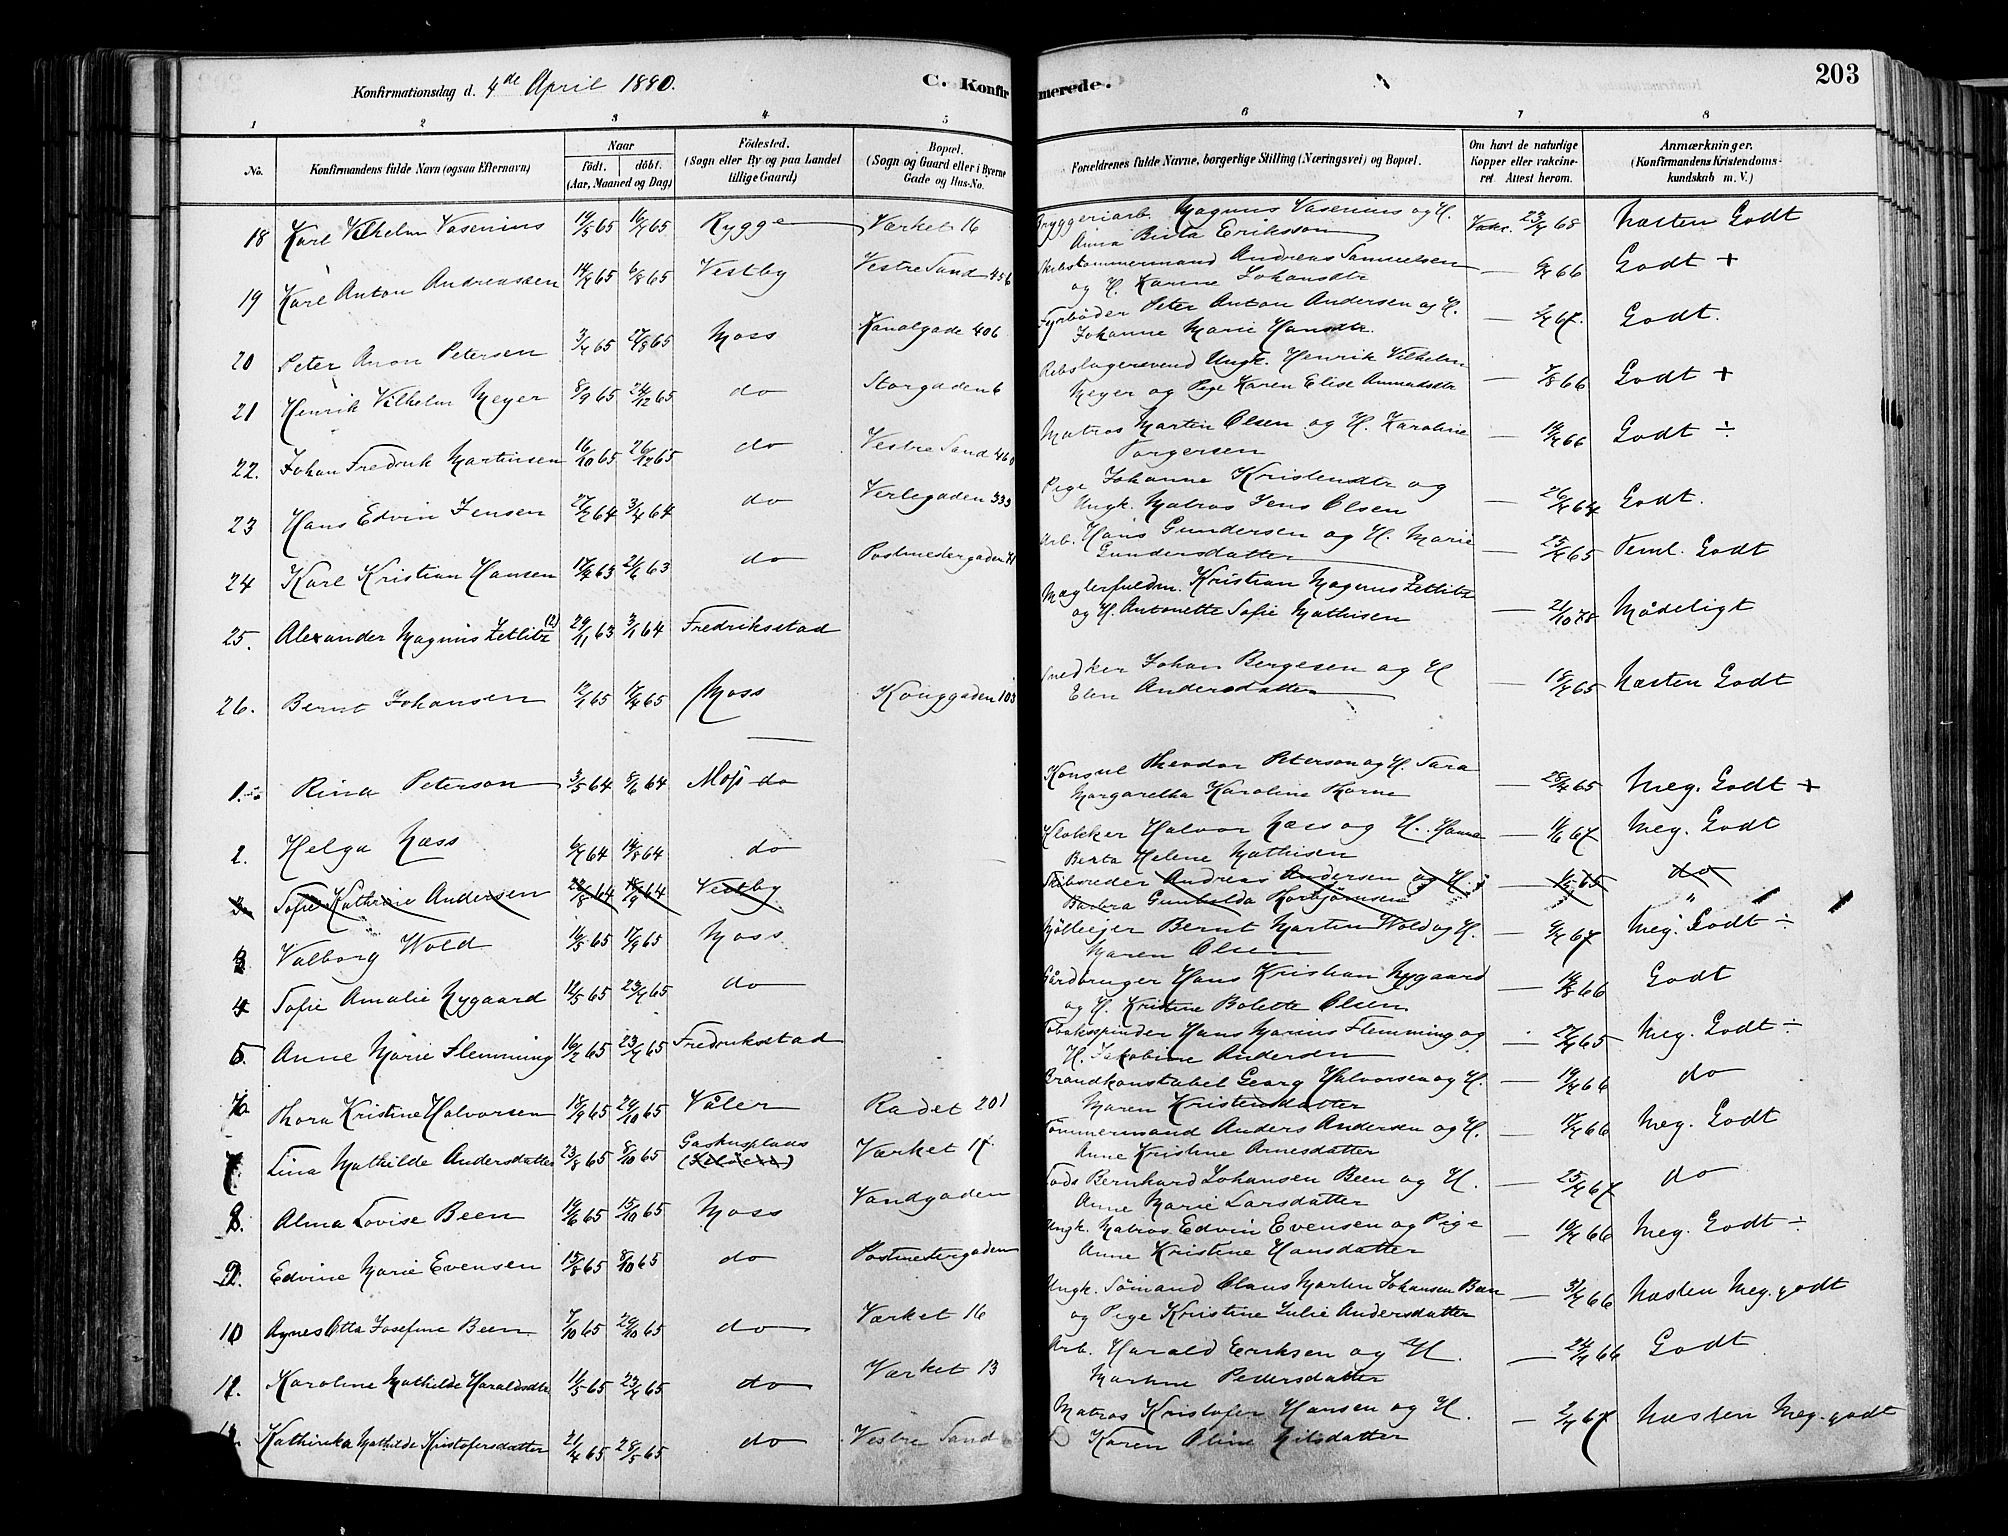 Konfirmationsdag d. 4de April 1880.
C. Konfirmerede.
203
1 2 3 4 5 6 7 8
No.
Konfirmandens fulde Navn (ogsaa Efternavn)
Naar
født. døbt.
(Aar, Maaned og Dag)
Fødested.
(Sogn eller By og paa Landet
tillige Gaard)
Bopæl.
(Sogn og Gaard eller i Byerne
Gade og Hus-No.
Forældrenes fulde Navne, borgerlige Stilling (Næringsvei) og Bopæl.
Om havt de naturlige
Kopper eller vakcine-
ret. Attest herom.
Anmærkninger.
(Konfirmandens Kristendoms-
kundskab m. V.)
18 Karl Vilhelm Vasenius 65 65 Rygge Værket 16 Bryggeriarb. Magnus Vasenius og H. Vakc. 65 Næsten Godt
Anna Brita Eriksson
19 Karl Anton Andreassen 65 6/8 65 Vestby Vestre Sand 456 Skibstømmermand Andreas Samuelsen — 66 Godt +
og H. Karine Johansdtr
20 Peter Aron Petersen 65 65 Moss Kanalgade 406 Fyrbøder Peter Anton Andersen og H. — 67. Godt.
Johanne Marie Hansdtr.
21 Henrik Vilhelm Meyer 8/9 65 24/12 65 do Storgaden 6 Rebslagersvend Ungk. Henrik Vilhelm — 66 Godt +
Meyer og Pige Karen Elise Amundsdtr
22. Johan Fredrik Martinsen 16/10 65 26/12 65 do Vestre Sand 460 Matros Martin Olsen og H. Karoline — 66 Godt ÷
Torgersen
23 Hans Edvin Jensen 27/2 64 3/4 64 do Verlegaden 333 Pige Johanne Kristensdtr og — 64 Godt.
Ungk. Matros Jens Olsen
24 Karl Kristian Hansen 63 63 do Postmestergaden Arb. Hans Gundersen og H. Marie — 65 Teml. Godt
Gundersdatter
25. Alexander Magnus Zetlitz (2) 29/11 63 3/1 64 Fredriksstad Mæglerfuldm. Kristian Magnus Zetlitz — 2/10 78 Mådeligt
og H. Antonette Sofie Mathisen
26. Bernt Johansen 65 65 Moss Konggaden 103 Snedker Johan Bergesen og H — 65 Næsten Godt
Elen Andersdatter
1. Rina Peterson 3/5 64 8/6 64 Moss do Konsul Theodor Peterson og H. Sara — 65 Meg. Godt +
Margaretha Karoline Thorne
2. Helga Næss 64 14/8 64 do Klokker Halvor Næss og H. Hanna — 67 Meg. Godt
Berta Helene Mathisen
3. Sofie Kathrine Andersen 64 64 Vestby Skibsreder Andreas Andersen og H. — 65 do
Barbra Gunhilda Torbjørnsen
3 Valborg Wold 65 65 Moss Mølleejer Bernt Martin Wold og H. — 67 Meg. Godt ÷
Maren Olsen
4 Sofie Amalie Nygaard 12/5 65 65 do Gårdbruger Hans Kristian Nygaard — 66 Godt
og H. Kristine Bolette Olsen
5. Anne Marie Flemming 16/2 65 65 Fredriksstad Tobaksspinder Hans Marius Flemming og 65 Meg. Godt ÷
H. Jakobine Andersen
Thora Kristine Halvorsen 18/9 65 29/10 65 Våler Rådet 201 Brandkonstabel Georg Halvorsen og H. — 66 do
Maren Kristensdatter
7 Lina Mathilde Andersdatter 23/8 65 8/10 65 Værket 17 Tømmermand Anders Andersen og H. — 66 Meg. Godt
Anne Kristine Arnesdatter
8. Alma Lovise Been 65 15/10 65 Moss Vandgaden Bernhard Johansen Been og H. — 67 do
Anne Marie Larsdatter
9. Edvine Marie Evensen 15/8 65 8/10 65 do Postmestergaden Ungk. Matros Edvin Evensen og Pige — 66 Meg. Godt ÷
Anne Kristine Hansdatter
10 Agnes Otta Josefine Been 7/10 65 29/10 65 do Værket 16 Ungk. Sømand Olaus Martin Johansen Been — 66 Næsten Meg. godt
og Pige Kristine Julie Andersdatter
11. Karoline Mathilde Haraldsdtr 65 65 do Værket 13 Arb. Harald Eriksen og H. — 66 Godt
Martine Pedersdatter
12. Kathinka Mathilde Kristofersdatter 21/4 65 28/5 65 do Vestre Sand Matros Kristofer Hansen og H. — 67 Næsten Meg. godt
Karen Oline Nilsdatter